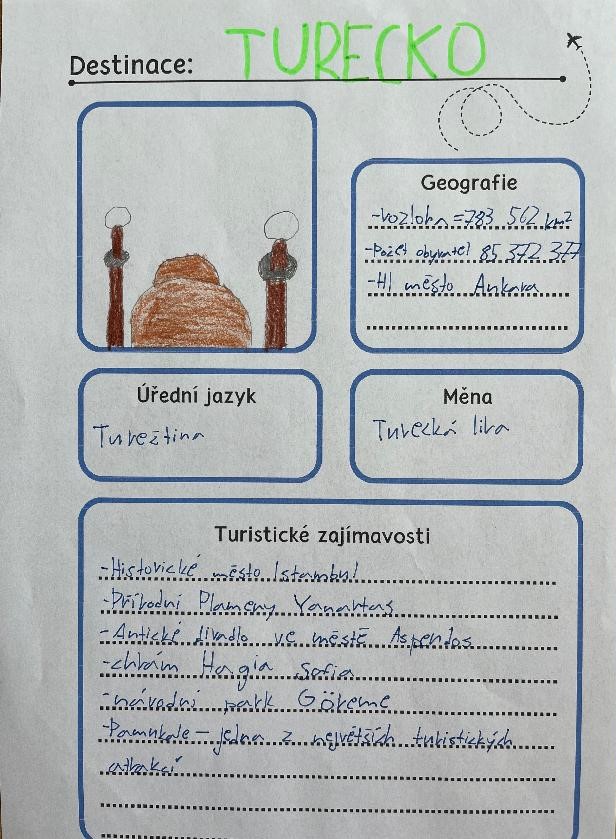 Destinace: TURECKO
Geografie
-rozloha = 783 562 km²
-Počet obyvatel 85 372 377
-Hl město Ankara
Úřední jazyk
Turečtina
Měna
Turecká lira
Turistické zajímavosti
-Historické město Istambul
-Přírodní Plameny Yanartas
-Antické divadlo ve městě Aspendos
-chrám Hagia Sofia
-národní park Göreme
-Pamukale – jedna z největších turistických
atrakcí